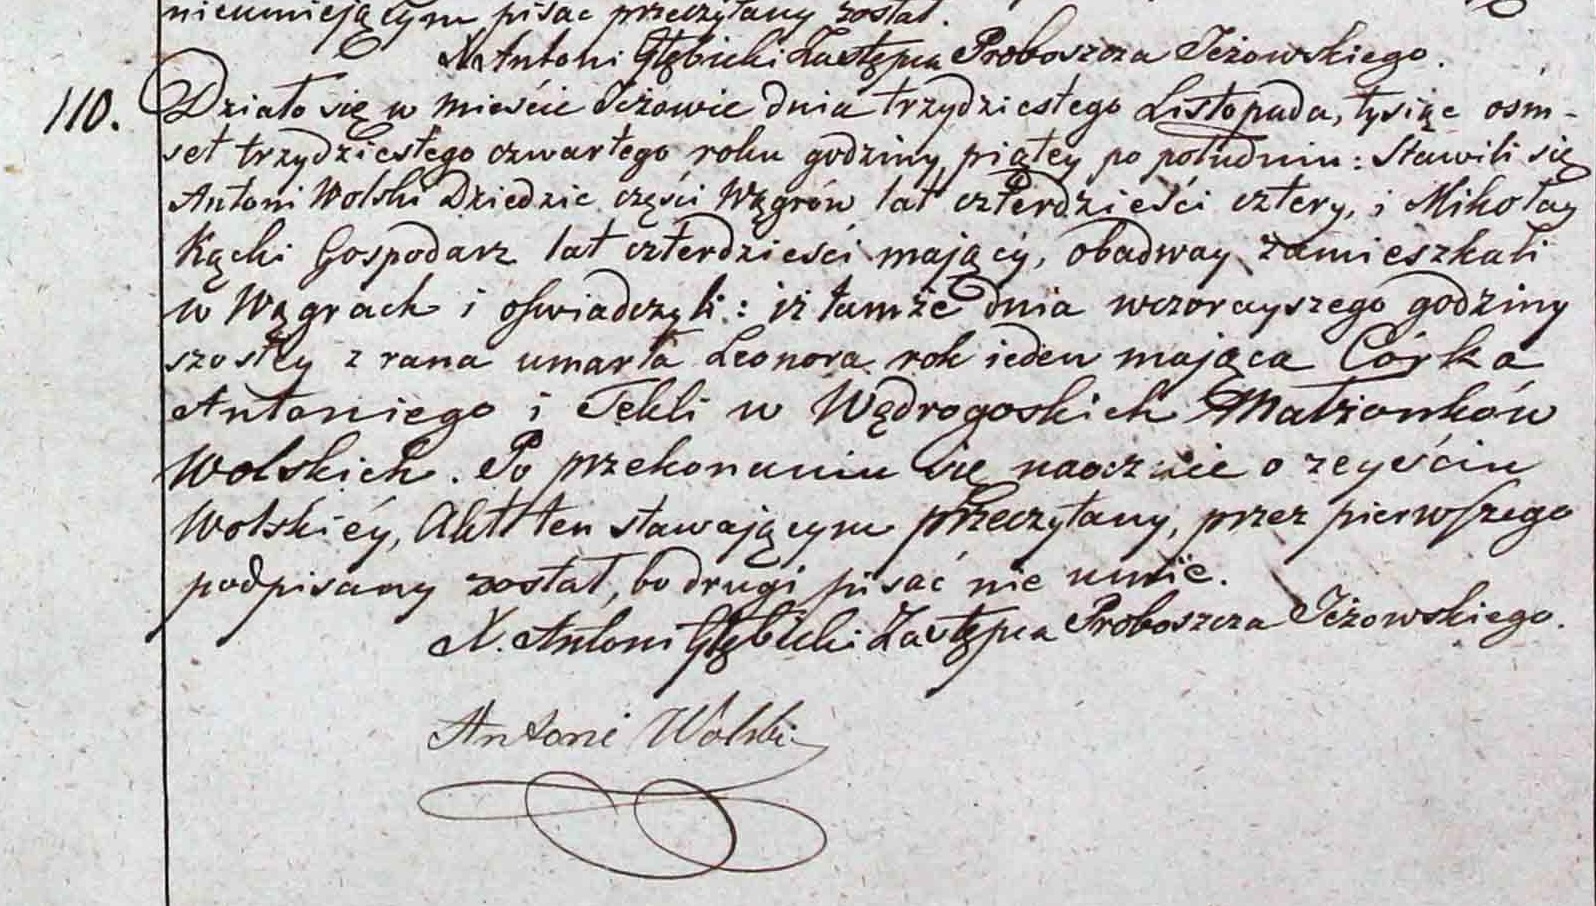 nieumiejącym pisac przeczytany został.
X. Antoni Głębicki Zastępca Proboszcza Jeżowskiego.
110. Działo się w mieście Jeżowie dnia trzydziestego Listopada, tysiąc ośm-
set trzydziestego czwartego roku godziny piątey po południu: Stawili się
Antoni Wolski Dziedzic części Wągrów lat czterdzieści cztery, i Mikołay
Kącki Gospodarz lat czterdzieści mający, obadway zamieszkali
w Wągrach i oświadczyli: iż tamże dnia wczorayszego godziny
szostey z rana umarła Leonora rok ieden mająca Córka
Antoniego i Tekli w Wędrogoskich Małżonków
Wolskich. Po przekonaniu się naocznie o zeyściu
Wolskiéy, Akt ten stawającym przeczytany, przez pierwszego
podpisany został, bo drugi pisać nie umie.
X. Antoni Głębicki Zastępca Proboszcza Jeżowskiego.
Antoni Wolski